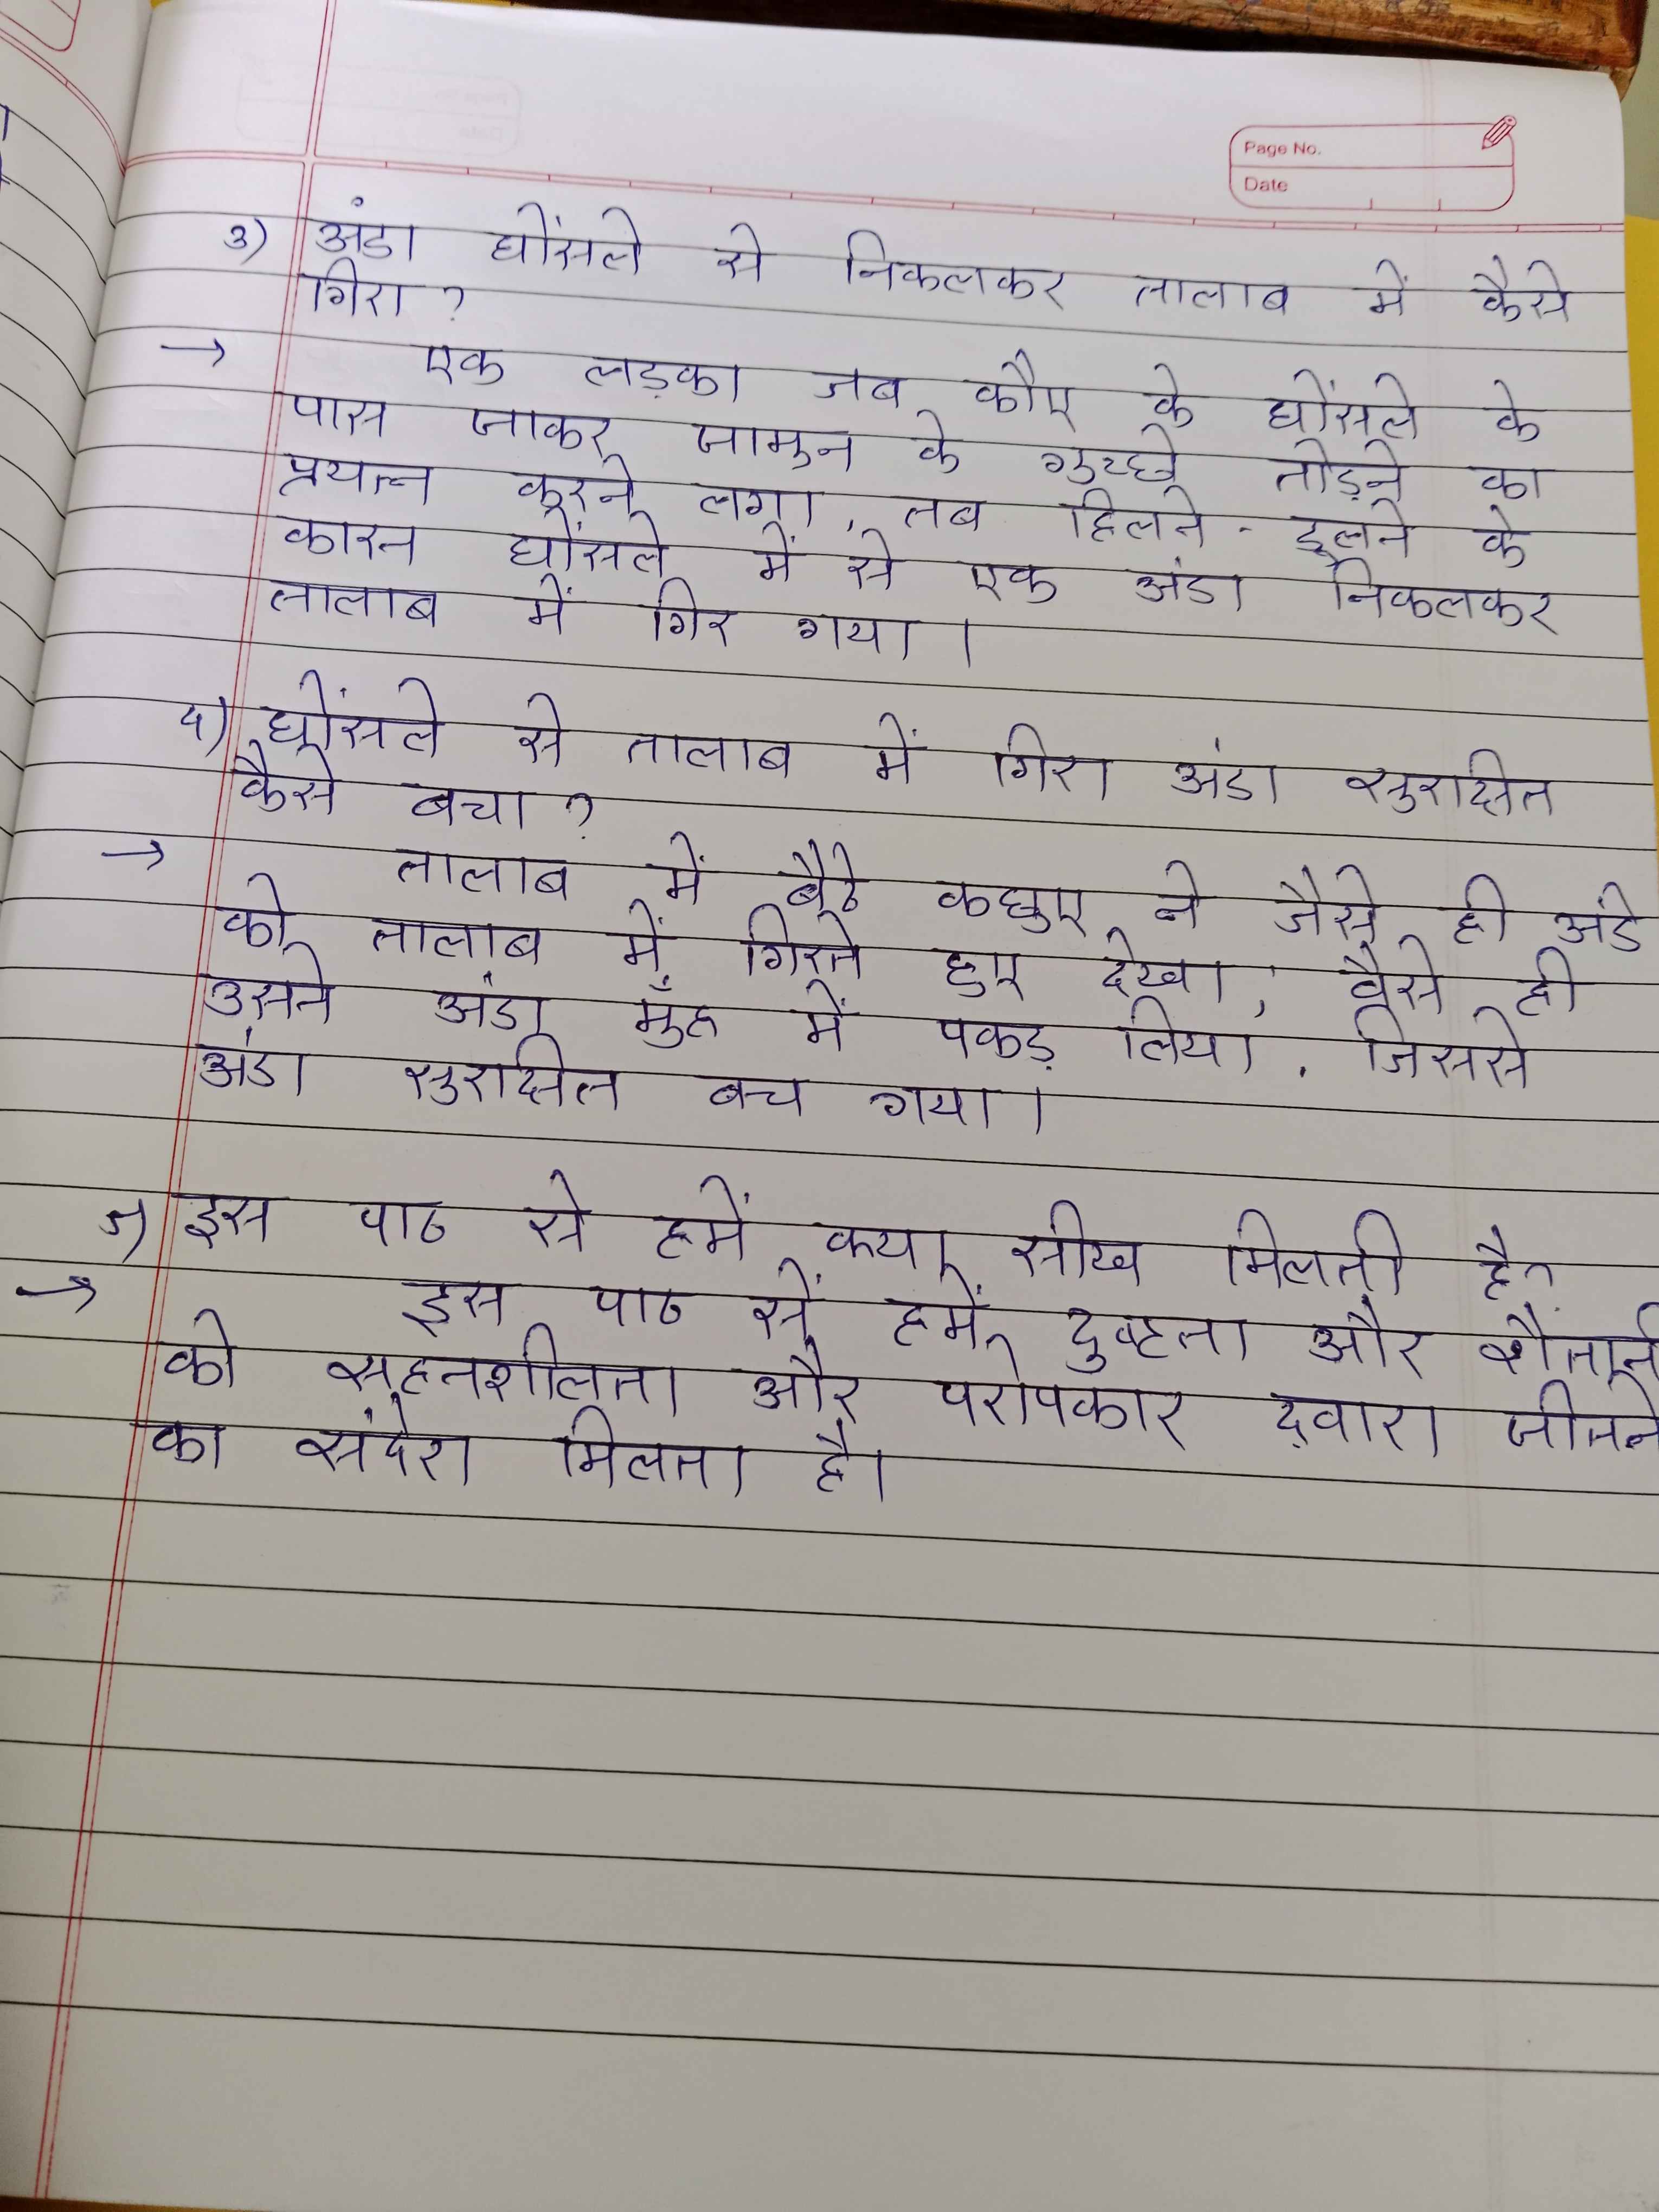 Page No.
Date
3) अंडा घोंसले से निकलकर तालाब में कैसे
गिरा ?
→ एक लड़का जब कौए के घोंसले के
पास जाकर जामुन के गुच्छे तोड़ने का
प्रयत्न करने लगा, तब हिलने-डुलने के
कारन घोंसले में से एक अंडा निकलकर
तालाब में गिर गया ।
4) घोंसले से तालाब में गिरा अंडा सुरक्षित
कैसे बचा ?
→ तालाब में बैठे कछुए ने जैसे ही अंडे
को तालाब में गिरते हुए देखा, वैसे ही
उसने अंडा मुँह में पकड़ लिया, जिससे
अंडा सुरक्षित बच गया।
5) इस पाठ से हमें क्या सीख मिलती है?
→ इस पाठ सें हमें दुष्टता और
को सहनशीलता और परोपकार द्वारा जीतने
का संदेश मिलता है।